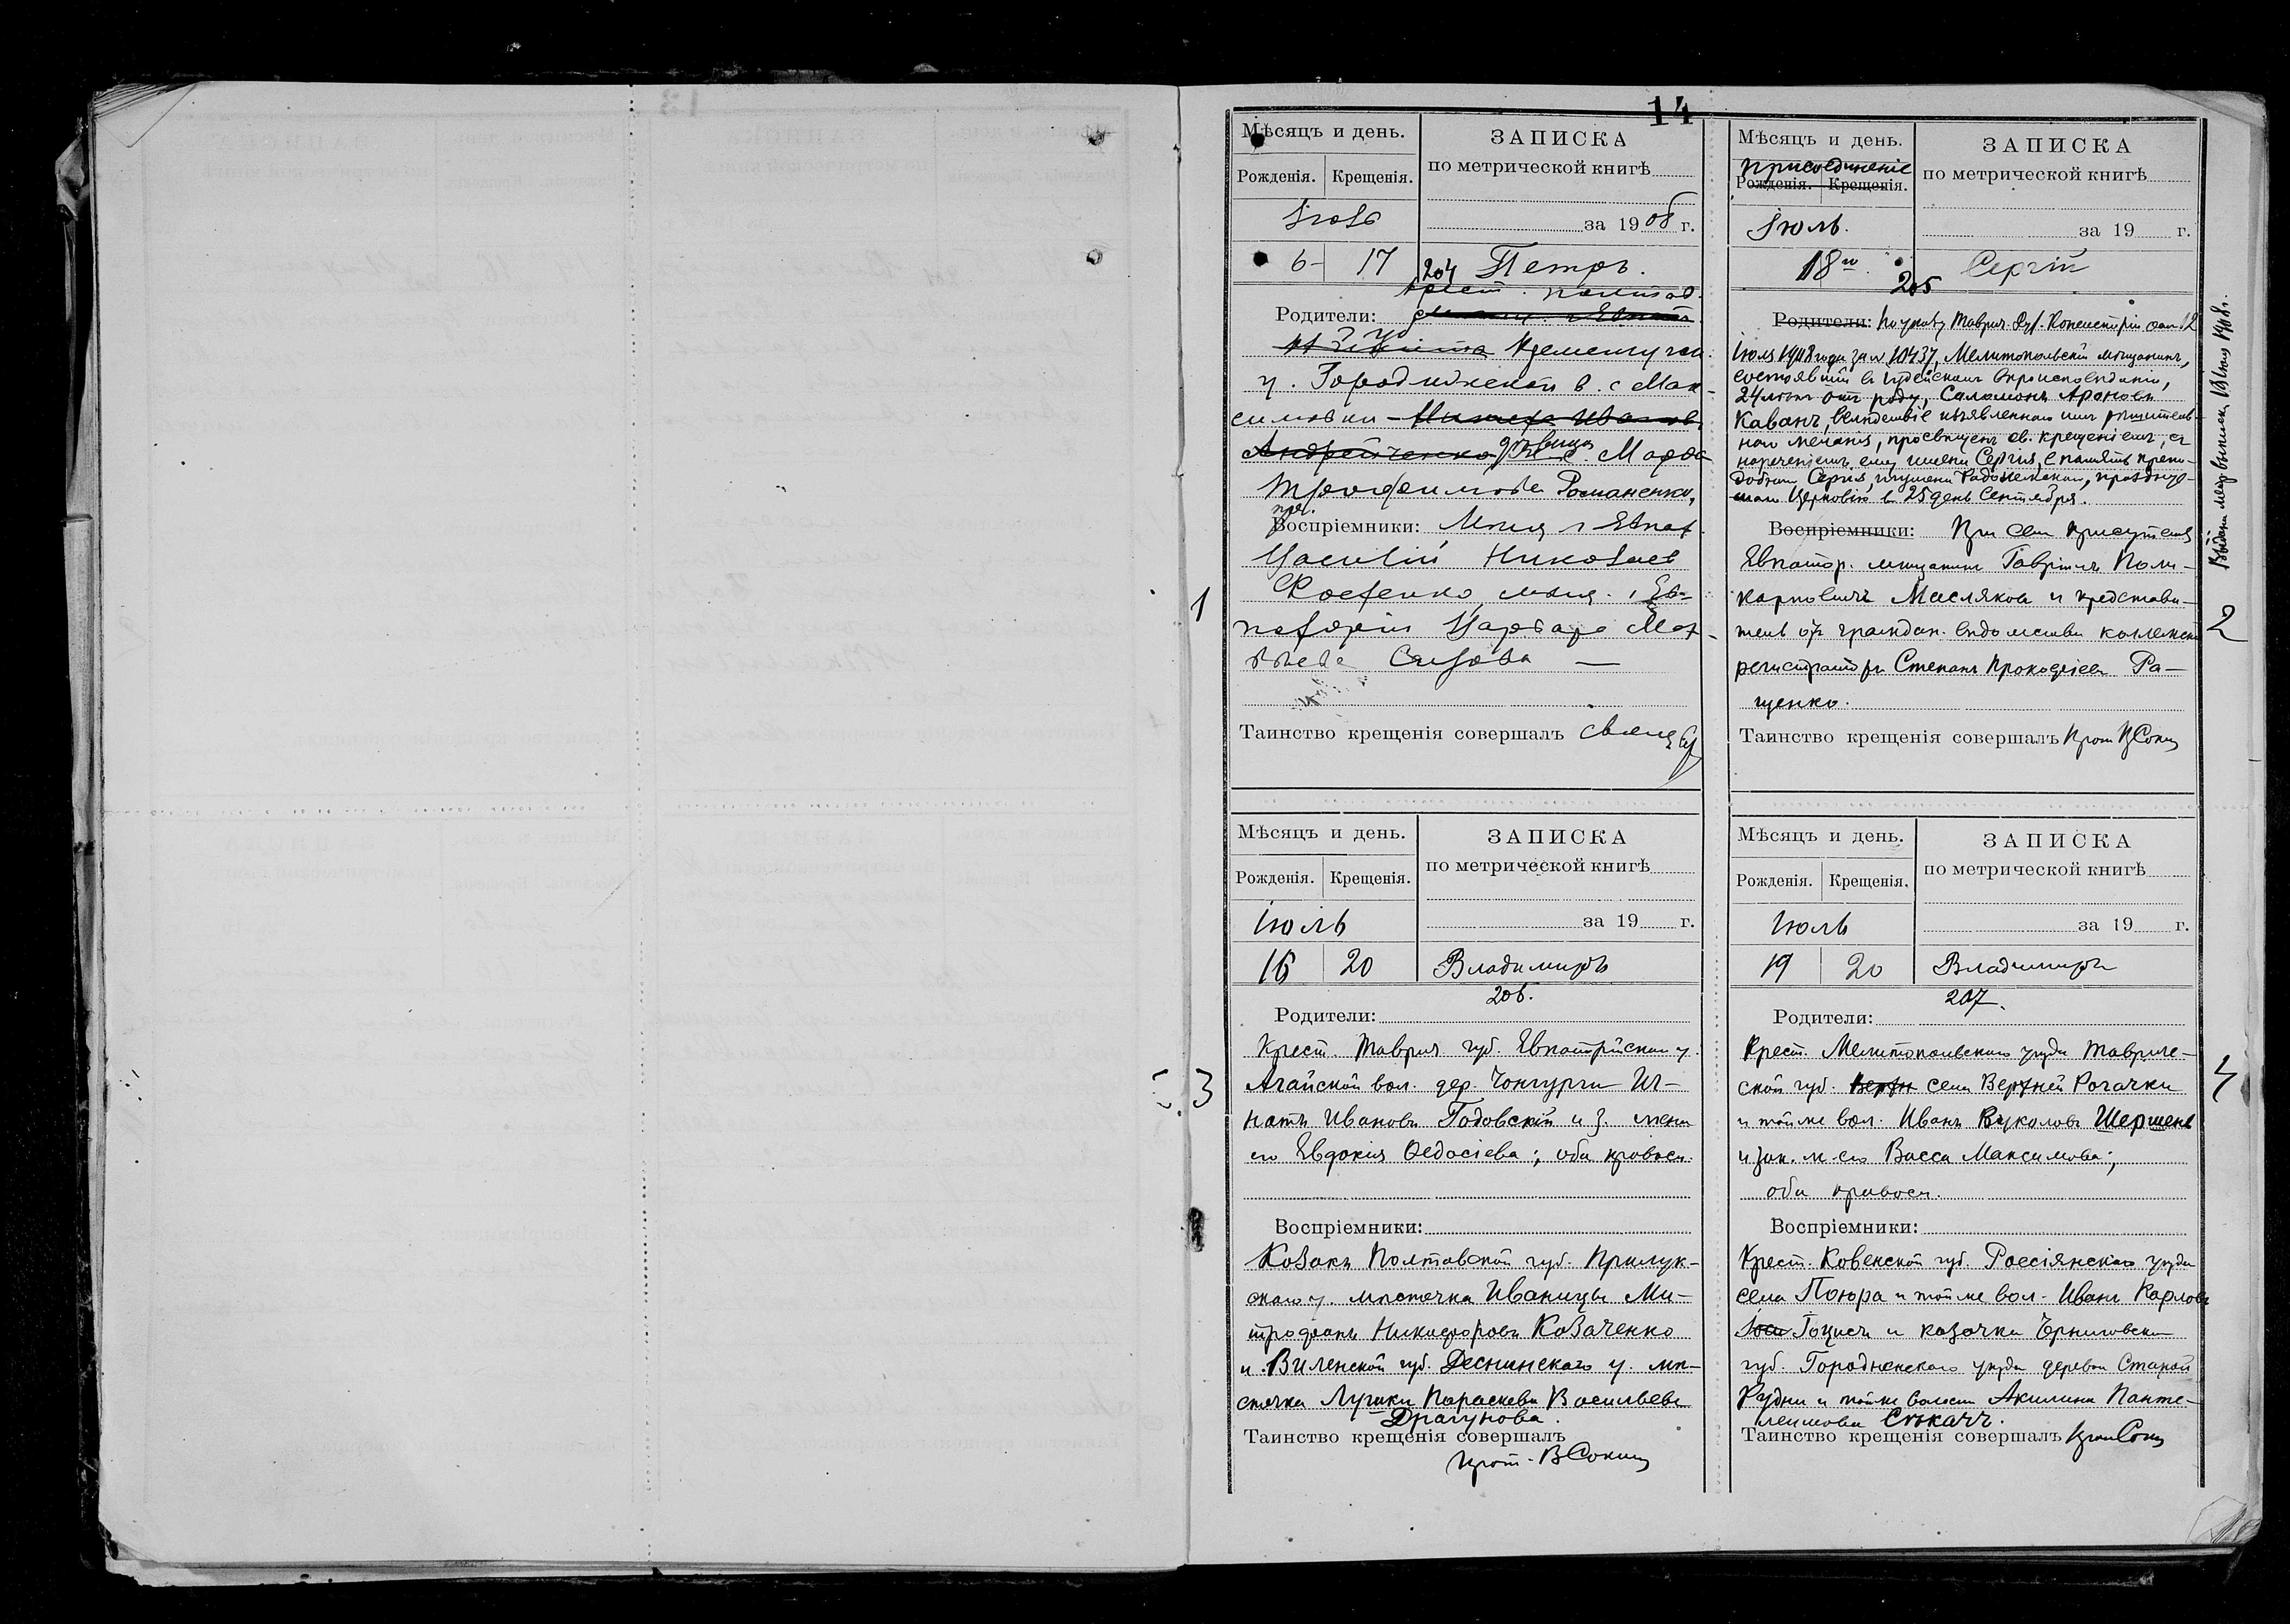 14
Мѣсяцъ и день.
Рожденія. Крещенія.
ЗАПИСКА
по метрической книгѣ
за 1908 г.
Іюль
6 17
204 Петръ.
крест. полтав.
Родители:
губ Кременчуген.
у. Городижской в. с Мак-
симовки
девица Марфа
Трофимова Романенко,
пр.
Воспріемники: Мѣщ. г Евпат.
Василій Николаев
Костенко, мѣщ. г. Ев-
паторіи Варвара Мат-
вѣева Сизова —
Таинство крещенія совершалъ свящ
1
Мѣсяцъ и день.
присоединеніе
Рожденія. Крещенія.
ЗАПИСКА
по метрической книгѣ
за 19 г.
Іюль.
18го.
205
Сергій
Родители: По указу Таврич. Дух. Консисторіи отъ 12
Іюля 1908 года за № 10437, Мелитопольскій мѣщанинъ,
состоявшій в іудейскомъ вѣроисповѣданіи,
24 лѣтъ отъ роду, Саломонъ Ароновъ
Каванъ, вслѣдствіе изъявленнаго имъ рѣшитель-
наго желанія, просвѣщенъ св. крещеніемъ, съ
нареченіемъ ему имени Сергія, в память препо-
добнаго Сергія, игумена Радонежскаго, празднуе-
маго Церковію в 25 день Сентября.
Воспріемники: При семъ присутств.
Евпатор. мѣщанинъ Гавріилъ Поли-
карповичъ Масляковъ и представи-
тель отъ граждан. вѣдомства коллежск
регистраторъ Степанъ Прокофіевъ Ра-
щенко.
Таинство крещенія совершалъ Прот. В Сокон
Выдана метр. выписка 18 Іюля 1908 г.
2
Мѣсяцъ и день.
Рожденія. Крещенія.
ЗАПИСКА
по метрической книгѣ
за 19 г.
Іюль
16 20
Владимиръ
206.
Родители:
Крест. Таврич. губ. Евпаторійскаго у.
Агайской вол. дер. Чонгурчи Иг-
натъ Ивановъ Годовскій и з. жена
его Евдокія Ѳедосіева; оба правосл.
Воспріемники:
Козакъ Полтавской губ. Прилук-
скаго у. мѣстечка Иваницы Ми-
трофанъ Никифоровъ Козаченко
и Виленской губ. Деснинскаго у. мѣ-
стечка Лужки Параскева Васильева
Драгунова.
Таинство крещенія совершалъ
Прот. В Сокон
3
Мѣсяцъ и день.
Рожденія. Крещенія.
ЗАПИСКА
по метрической книгѣ
за 19 г.
Іюль
19 20
Владимиръ
207.
Родители:
Крест. Мелитопольскаго уѣзда Тавриче-
ской губ. Верхн села Верхней Рогачки
и той же вол. Иванъ Вуколовъ Шершень
и зак. ж. его Васса Максимова;
оба правосл.
Воспріемники:
Крест. Ковенской губ. Россіянскаго уѣзда
села Поюра и той же вол. Иванъ Карловъ
Гоцисъ и казачка Черниговской
губ. Городненскаго уѣзда деревни Старой
Рудни и той же волости Акилина Панте-
леимова Стокачъ.
Таинство крещенія совершалъ Прот. Сокон
4